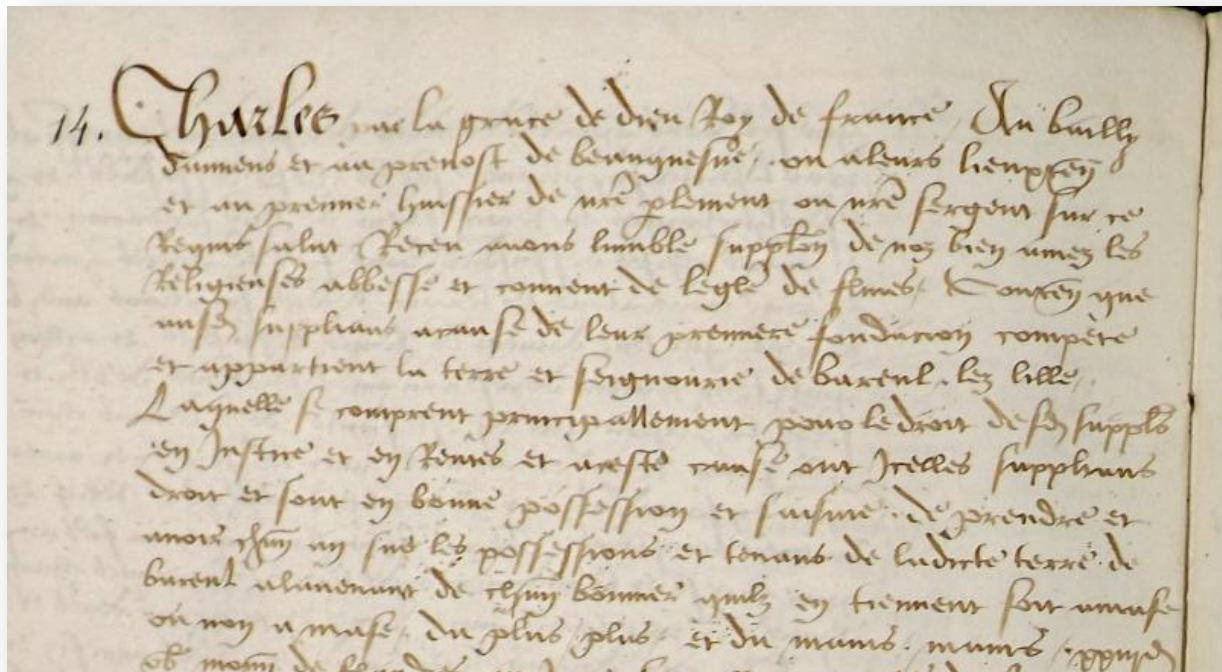 14. Charles par la grace de dieu Roy de france Au bailly
damiens et au prevost de beauquesne, ou a leurs lieuxten
et au premier huissier de nre plement ou nre sergent sur ce
Requis salut Receu avons lumble supplon de noz bien amez les
Religieuses abbesse et couvent de legle de flines, Conten que
ausd supplians a cause de leur premiere fondacion compete
et appartient la terre et seignourie de bareul lez lille,
Laquelle se comprent principallement pour le droit desd suppls
en Justice et en Rentes et a ceste cause ont Icelles supplians
droit et sont en bonne possession et saisine de prendre et
avoir chun an sur les possessions et tenans de ladicte terre de
bareul a lavenant de chun bonnier quilz en tiennent soit amase
ou non amase, du plus plus et du mains mains,
ob de flandres